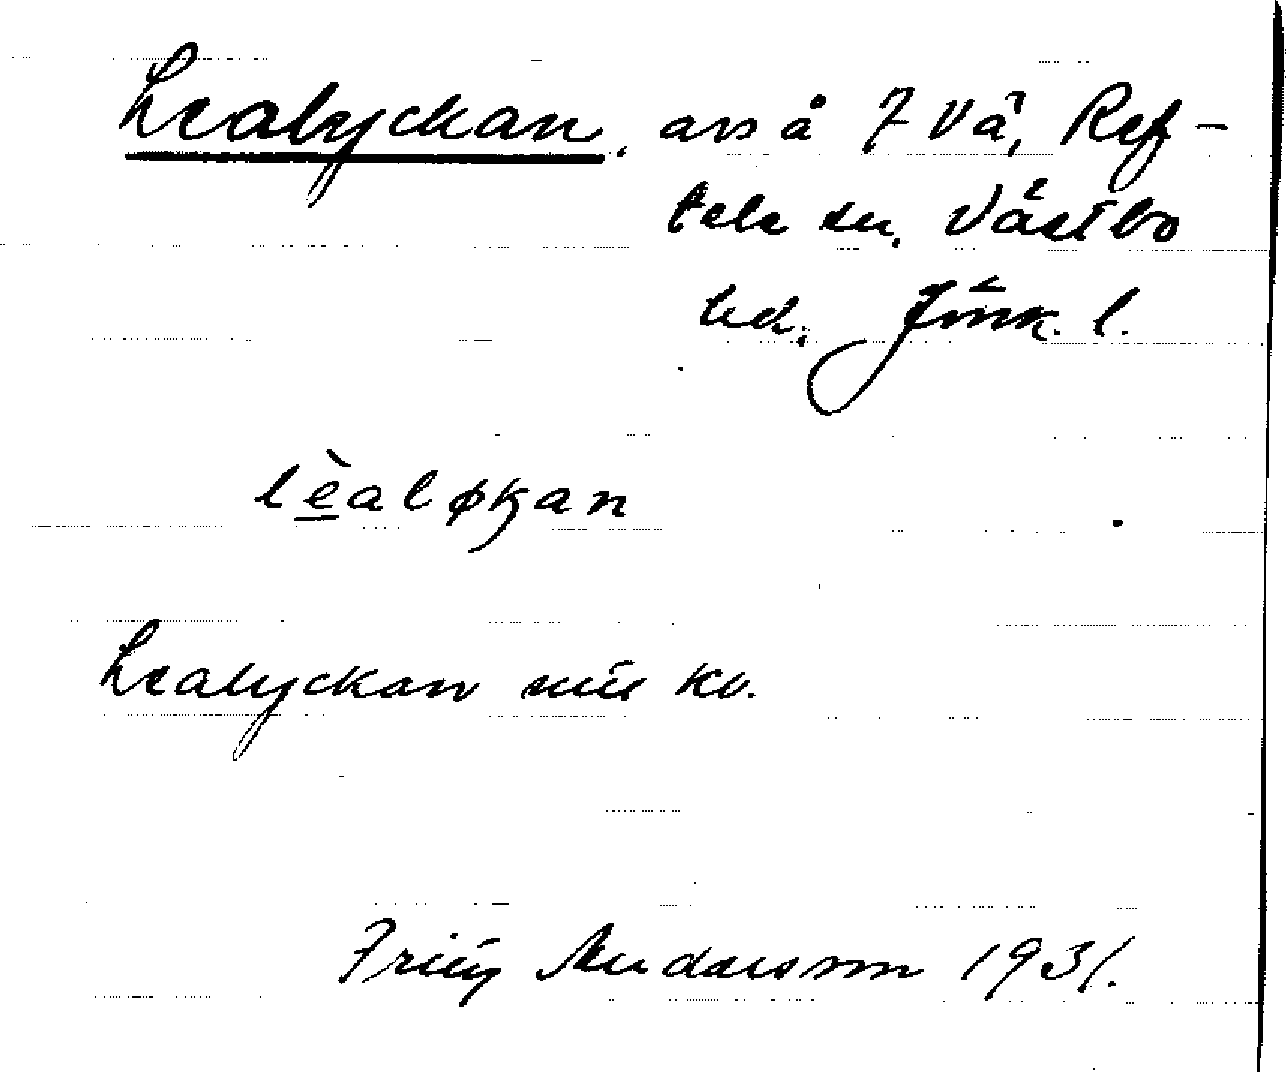 Lealyckan, avs å 7 Vä, Ref-
tele sn, Västbo
hd, Jönk. l.
lèaløkan
Lealyckan mts ko.
Andersson 1931.